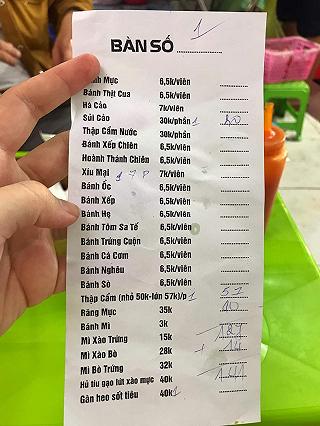 1
BÀN SỐ
Bánh Mực 6,5k/viên
Bánh Thịt Cua 6,5k/viên
Há Cảo 7k/viên
Sủi Cảo 30k/phần 1
Thập Cẩm Nước 30k/phần
Bánh Xếp Chiên 6,5k/viên
Hoành Thánh Chiên 6,5k/viên
Xíu Mại 7k/viên
Bánh Ốc 6,5k/viên
Bánh Xếp 6,5k/viên
Bánh Hẹ 6,5k/viên
Bánh Tôm Sa Tế 6,5k/viên
Bánh Trứng Cuộn 6,5k/viên
Bánh Cá Cơm 6,5k/viên
Bánh Nghêu 6,5k/viên
Bánh Sò 6,5k/viên
Thập Cẩm (nhỏ 50k-lớn 57k)/p 1 57
Răng Mực 35k 40
Bánh Mì 3k
Mì Xào Trứng 15k
Mì Xào Bò 28k + 14
Mì Bò Trứng 32k 141
Hủ tíu gạo lứt xào mực 40k
Gân heo sốt tiêu 40k 1